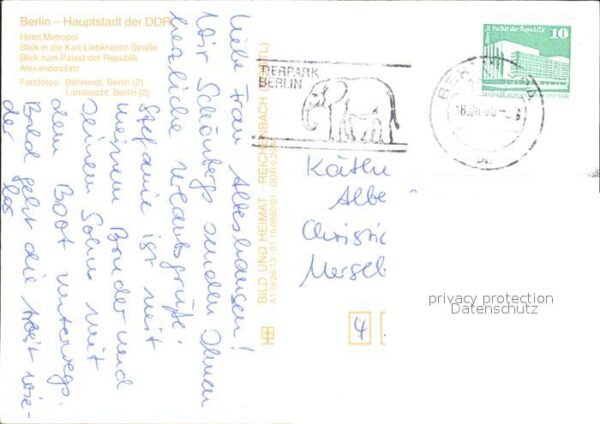 Berlin – Hauptstadt der DDR
Hotel Metropol
Blick in die Karl-Liebknecht-Straße
Blick zum Palast der Republik
Alexanderplatz
Farbfotos: Behrendt, Berlin (2)
Lambrecht, Berlin (2)
Liebe Frau Alteshausen!
Wir Schönbergs senden Ihnen
herzliche Urlaubsgrüße.
Stefanie ist mit
meinem Bruder und
seinem Sohn mit
dem Boot unterwegs.
Bald geht die Arbeit wie-
der los
BILD UND HEIMAT · REICHENBACH
TIERPARK
BERLIN
Palast der Republik
10
DDR
Käthe
Albe
Christi
Merseb
4
privacy protection
Datenschutz